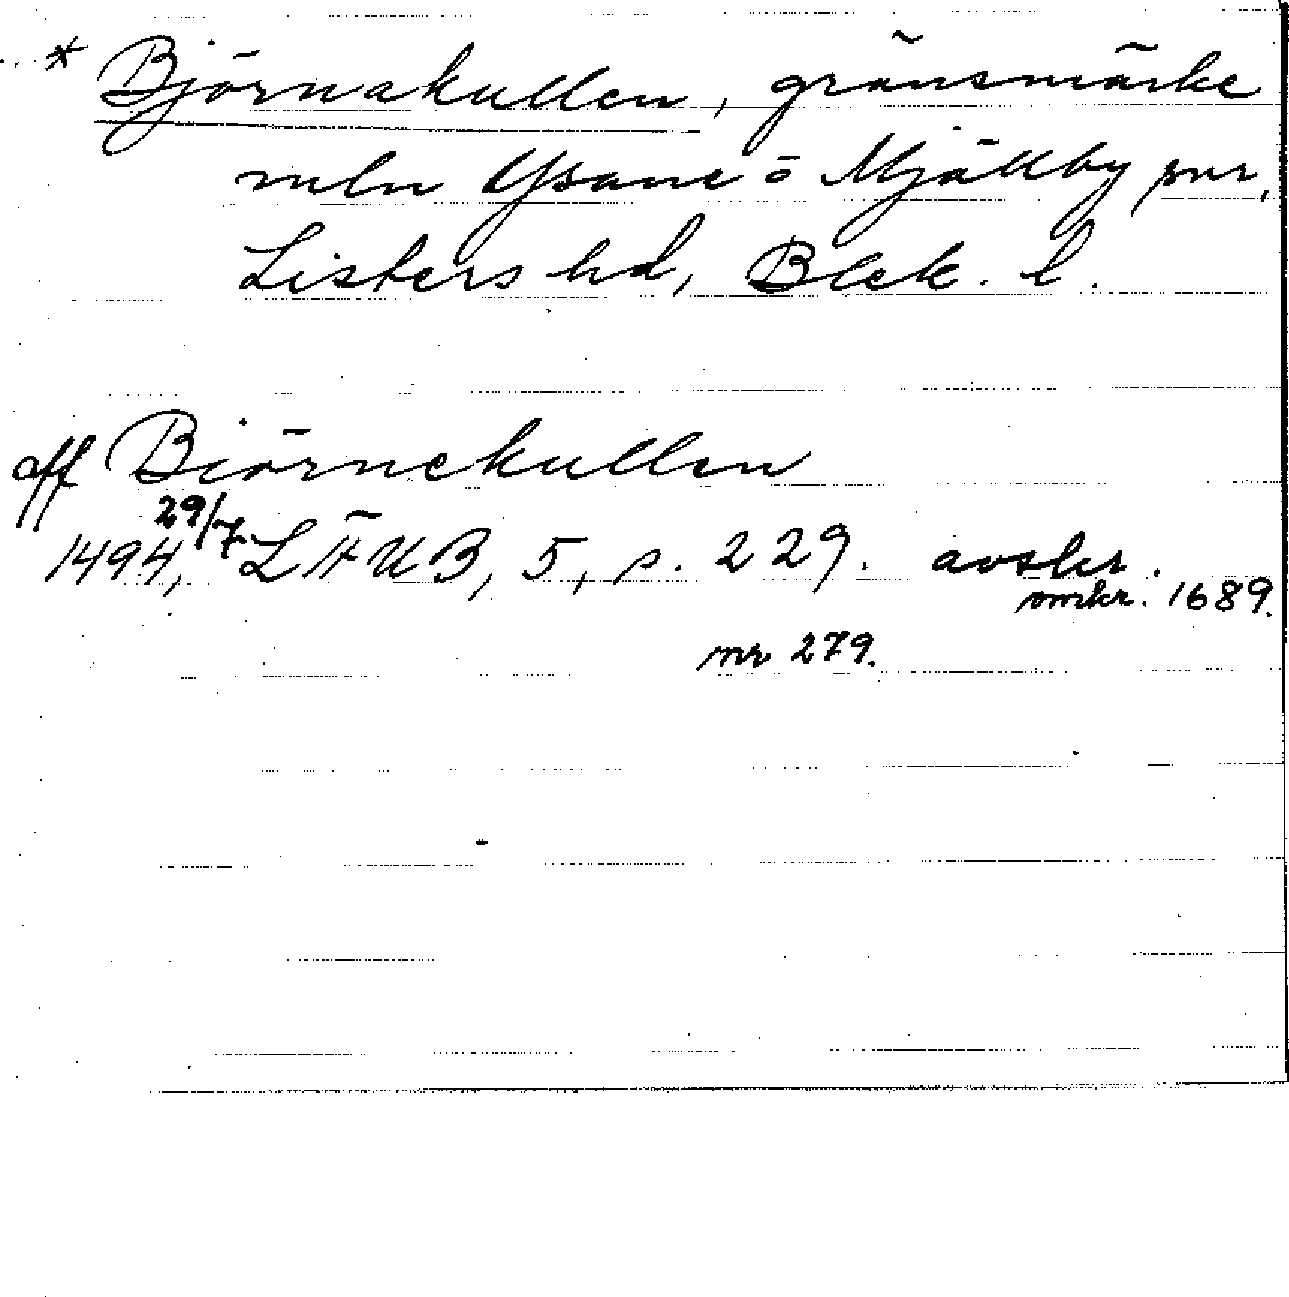 * Björnakullen, gränsmärke
mln Ysane o Mjällby snr,
Listers hd, Blek. l.
aff Biörnekullen
1494, 29/7 LÄUB, 5, s. 229. avskr.
omkr. 1689.
nr 279.